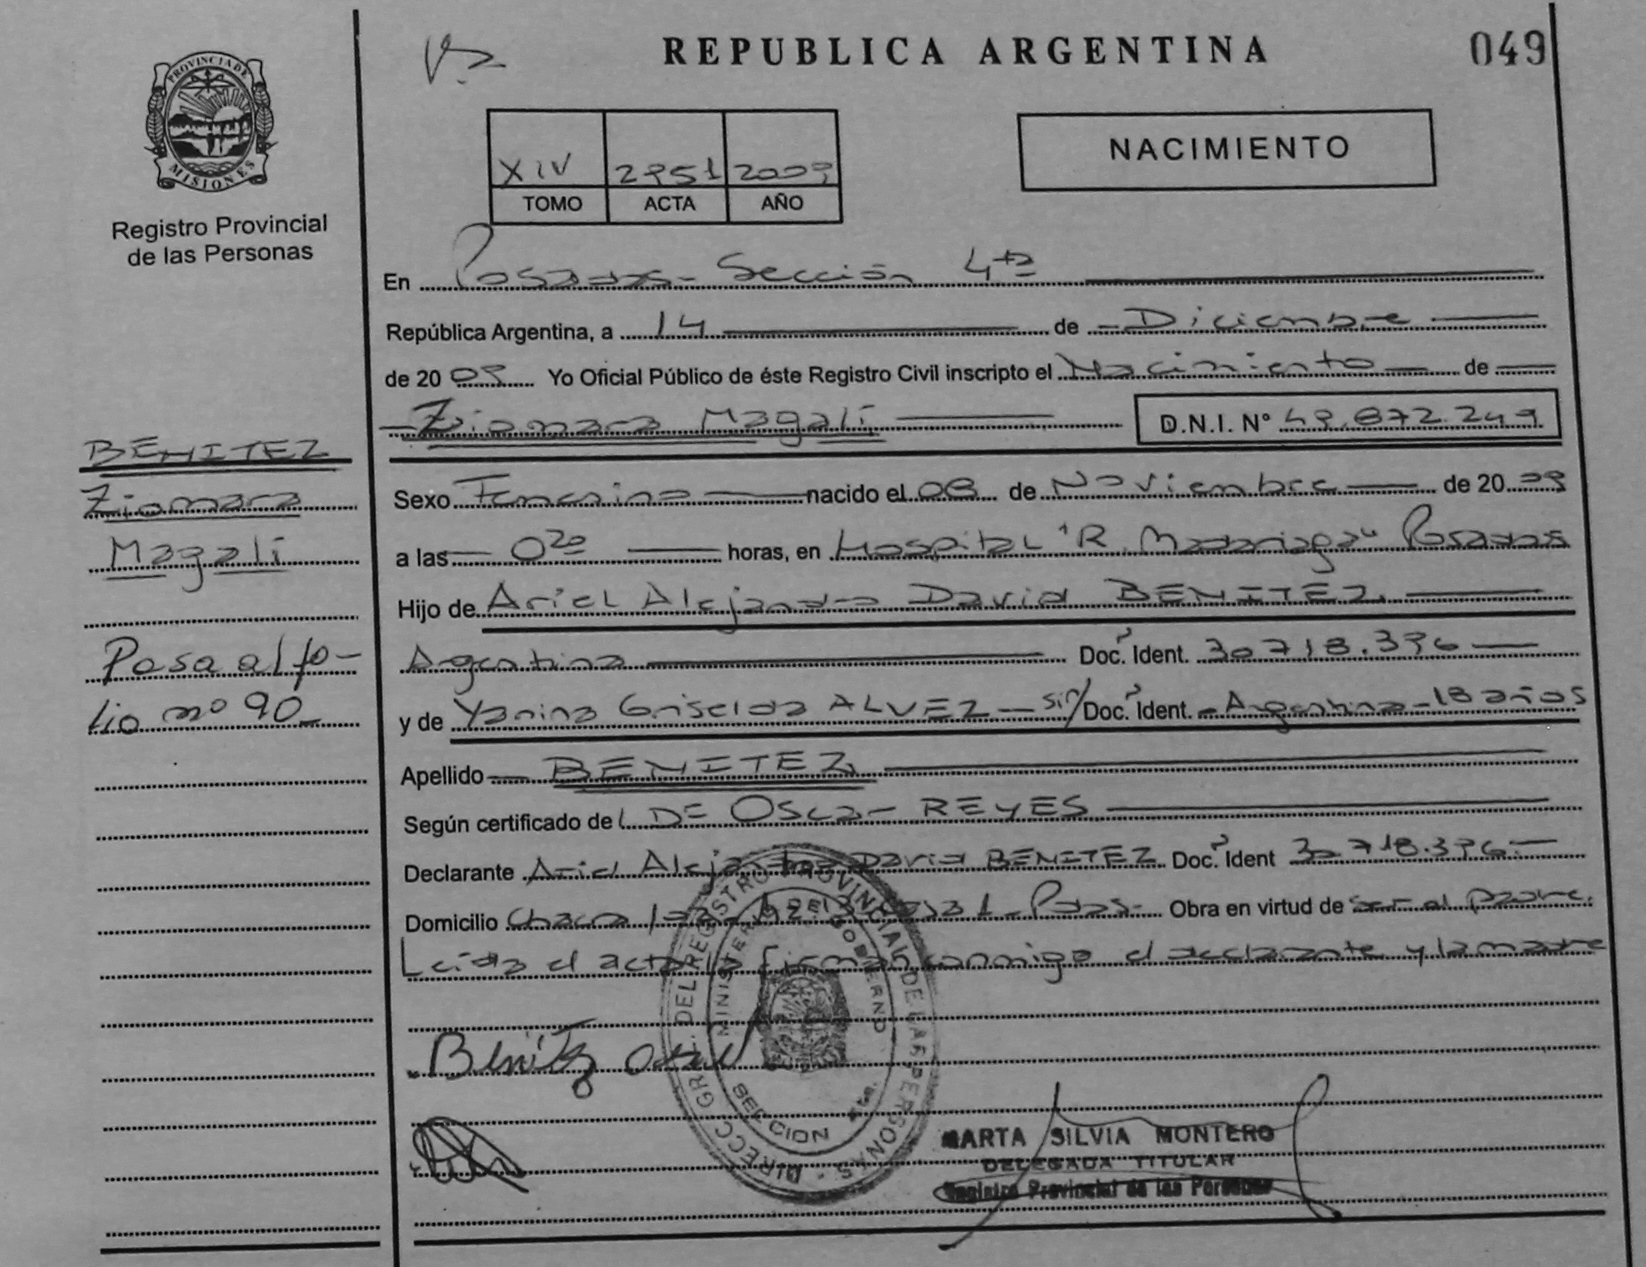 PROVINCIA DE
MISIONES
Registro Provincial
de las Personas
REPUBLICA ARGENTINA
049
XIV 2951 2009
TOMO ACTA AÑO
NACIMIENTO
En Posadas - Sección 4ta
República Argentina, a 14 de Diciembre
de 20 09 Yo Oficial Público de éste Registro Civil inscripto el Nacimiento de
Ziomara Magalí D.N.I. N° 49.872.249
BENITEZ
Ziomara
Magalí
Pasa al fo-
lio nº 90
Sexo Femenino nacido el 08 de Noviembre de 20 09
a las 020 horas, en Hospital "R. Madariaga" Posadas
Hijo de Ariel Alejandro David BENITEZ
Argentina Doc. Ident. 30.718.396
y de Yanina Griselda ALVEZ - sin/Doc. Ident. - Argentina - 18 años
Apellido BENITEZ
Según certificado de L DE Oscar REYES
Declarante Ariel Alejandro David BENITEZ Doc. Ident 30.718.396
Domicilio Chacra Casa 1 - Pdas - Obra en virtud de ser el padre.
Leída el acta la firman conmigo el declarante y la madre
Benitez
DIRECC. GRAL. DEL REGISTRO PROVINCIAL DE LAS PERSONAS
MINISTERIO DE GOBIERNO
SECCION 4ta.
MARTA SILVIA MONTERO
DELEGADA TITULAR
Registro Provincial de las Personas